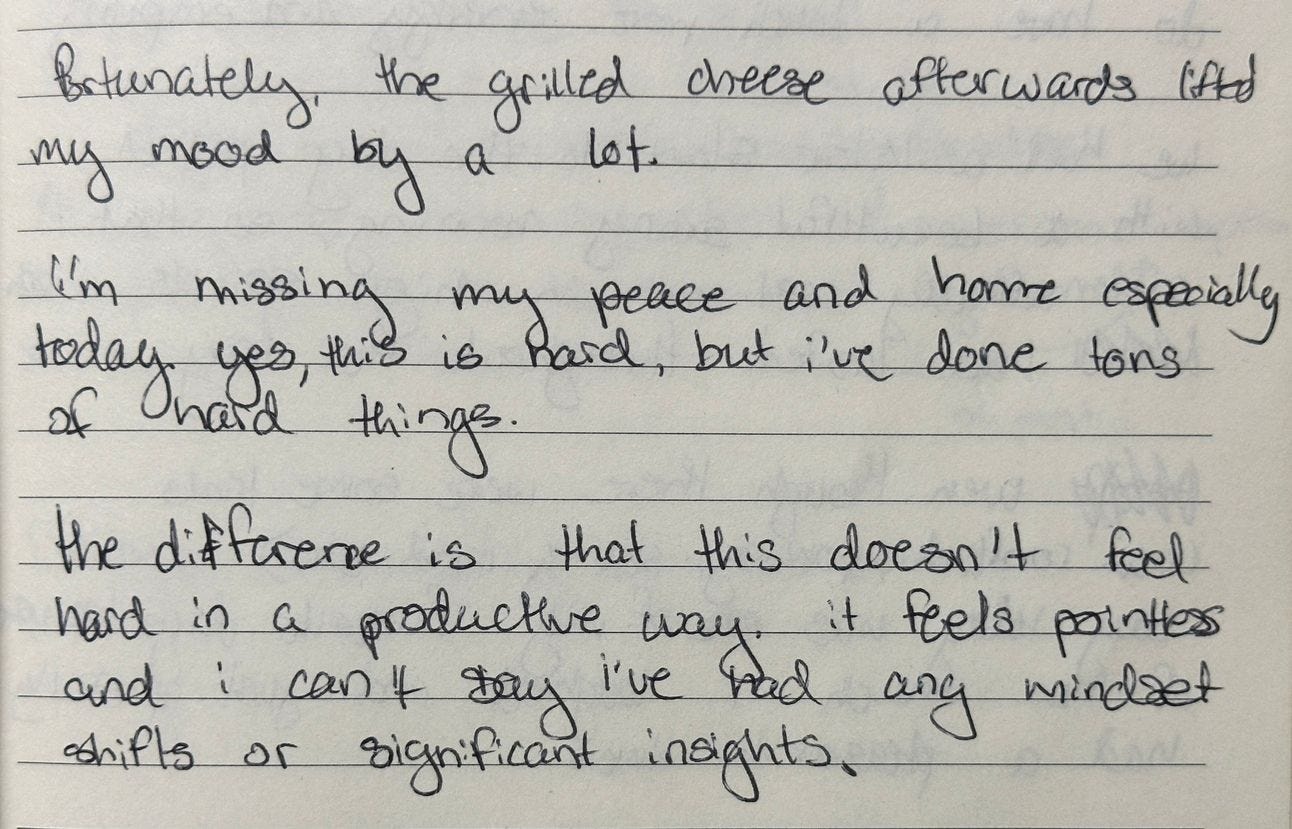 fortunately, the grilled cheese afterwards lifted
my mood by a lot.
i'm missing my peace and home especially
today. yes, this is hard, but i've done tons
of hard things.
the difference is that this doesn't feel
hard in a productive way. it feels pointless
and i can't say i've had any mindset
shifts or significant insights.